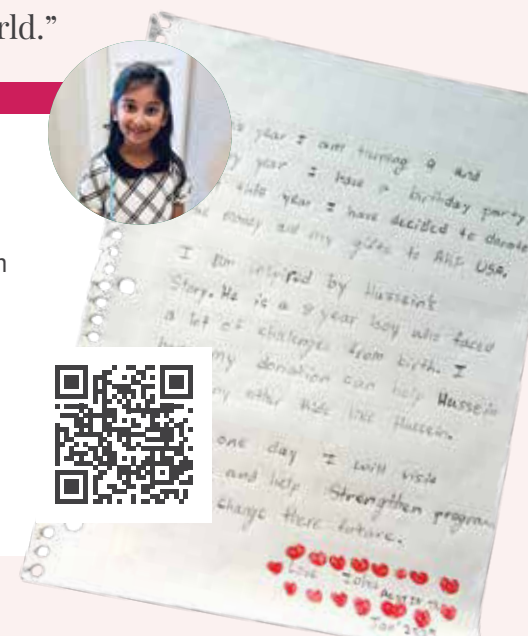 rld.”
n
s year I am turning 9 and
y year I have a birthday party
this year I have decided to donate
money and my gifts to AKF USA.
I am inspired by Hussein's
Story. He is a 9 year boy who faced
a lot of challenges from birth. I
my donation can help Hussein
ny other kids like Hussein.
one day I will visit
and help Strengthen program
change there future.
Love
Jan'